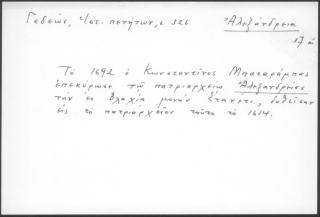 Γεδεών, Ἱστ. πενήτων, σ 326 Ἀλεξάνδρεια
17 α
Τὸ 1692 ὁ Κωνσταντῖνος Μπασαράμπας
ἐπεκύρωσε τῷ πατριαρχείῳ Ἀλεξανδρείας
τὴν ἐν Βλαχίᾳ μονὴν Στανέτι, δοθεῖσαν
εἰς τὸ πατριαρχεῖον τοῦτο τὸ 1614.